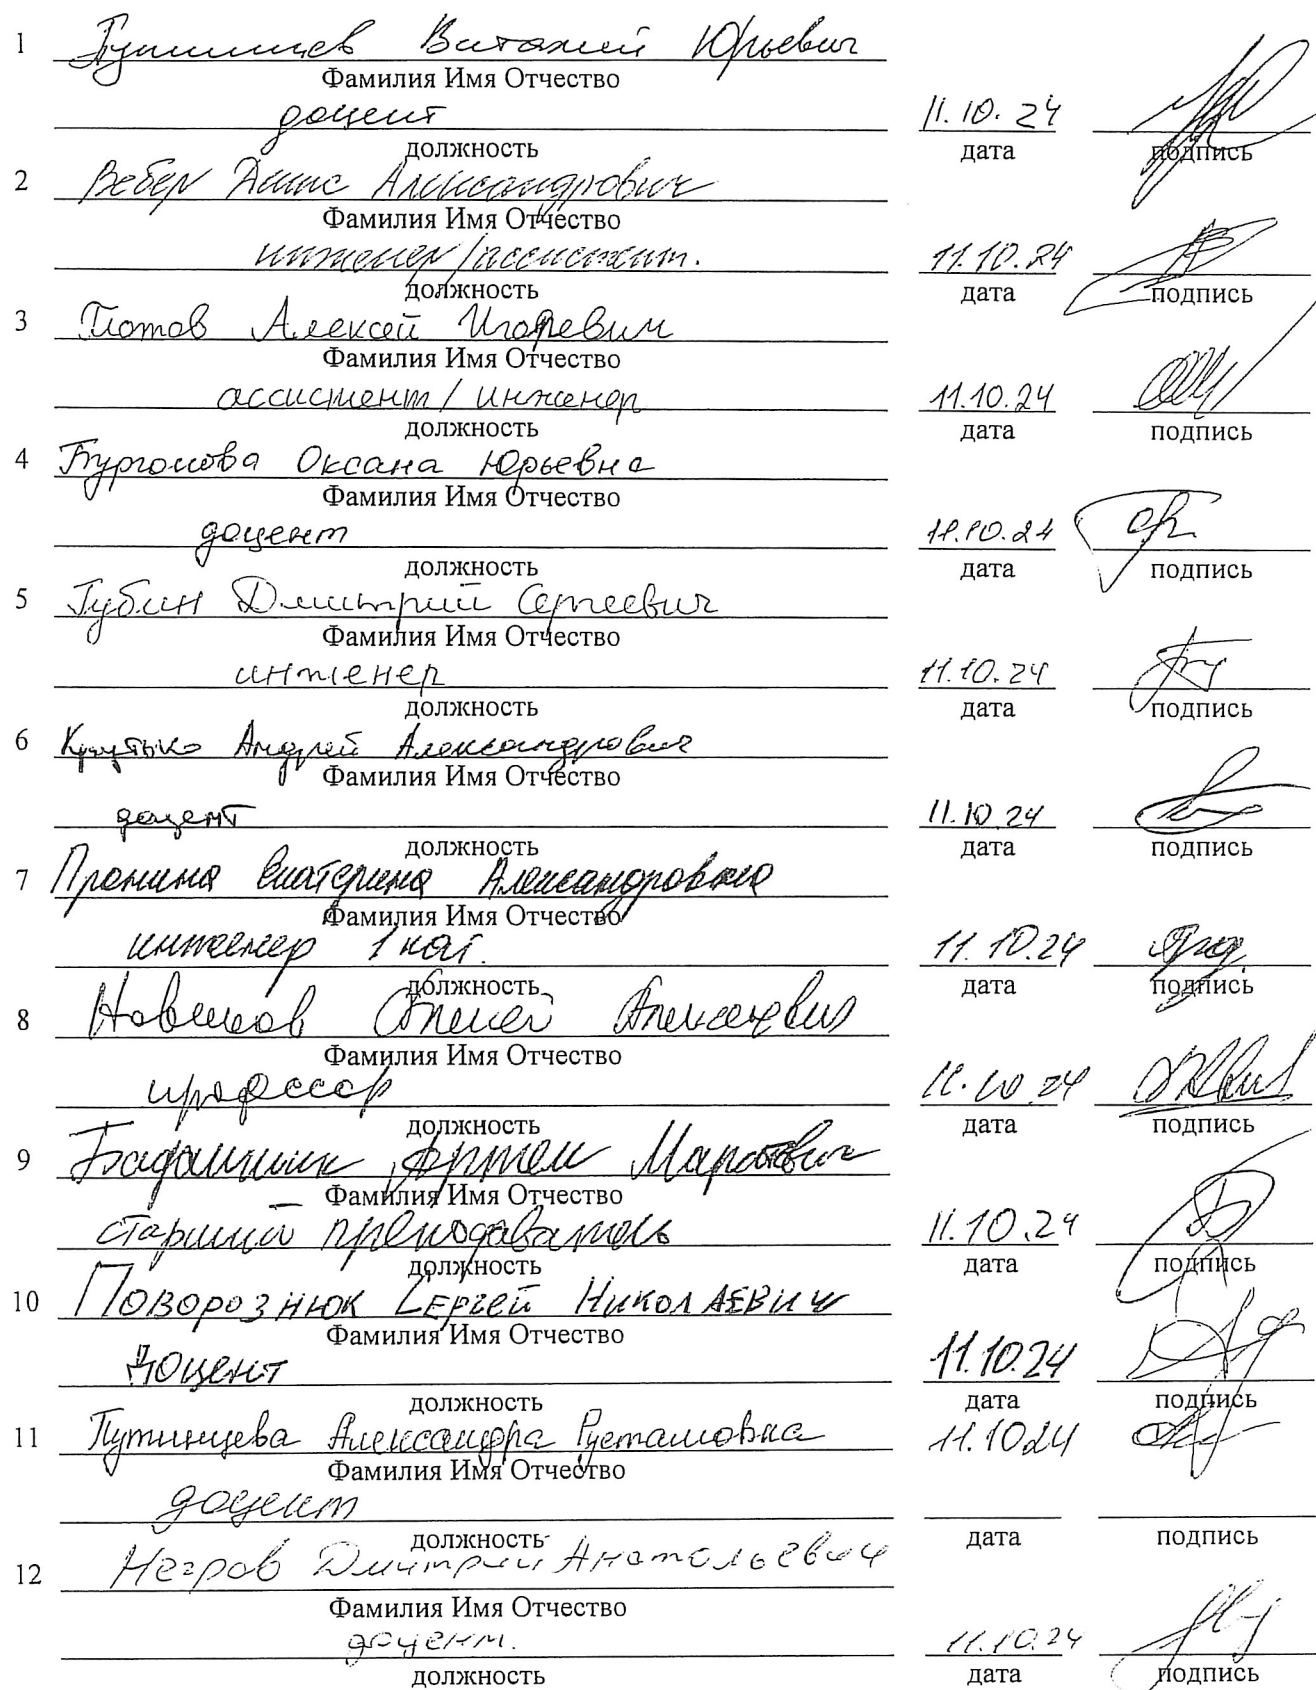 1 Виталий Юрьевич
Фамилия Имя Отчество
доцент 11.10.24
должность дата подпись
2 Вебер Денис Александрович
Фамилия Имя Отчество
инженер/ассистент. 11.10.24
должность дата подпись
3 Глотов Алексей Игоревич
Фамилия Имя Отчество
ассистент/инженер 11.10.24
должность дата подпись
4 Бургонова Оксана Юрьевна
Фамилия Имя Отчество
доцент 11.10.24
должность дата подпись
5 Губин Дмитрий Сергеевич
Фамилия Имя Отчество
инженер 11.10.24
должность дата подпись
6 Крутько Андрей Александрович
Фамилия Имя Отчество
доцент 11.10.24
должность дата подпись
7 Пронина Екатерина Александровна
Фамилия Имя Отчество
инженер 1 кат. 11.10.24
должность дата подпись
8 Новиков Алексей Алексеевич
Фамилия Имя Отчество
профессор 11.10.24
должность дата подпись
9 Артем Маратович
Фамилия Имя Отчество
старший преподаватель 11.10.24
должность дата подпись
10 Поворознюк Сергей Николаевич
Фамилия Имя Отчество
доцент 11.10.24
должность дата подпись
11 Путинцева Александра Рустамовна 11.10.24
Фамилия Имя Отчество
доцент
должность дата подпись
12 Негров Дмитрий Анатольевич
Фамилия Имя Отчество
доцент. 11.10.24
должность дата подпись